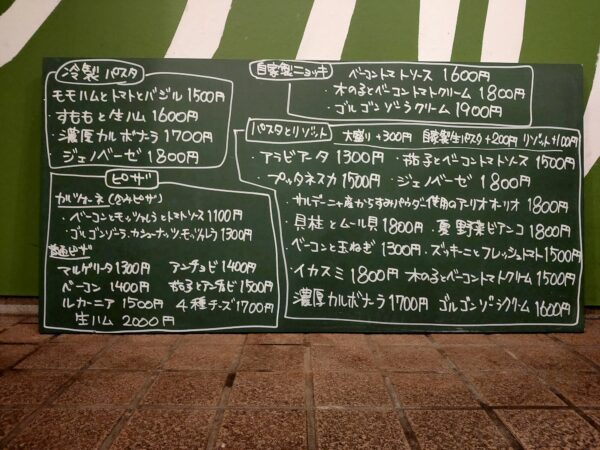 冷製パスタ
モモハムとトマトとバジル 1500円
・すももと生ハム 1600円
・濃厚カルボナーラ 1700円
・ジェノベーゼ 1800円
ピザ
カルツォーネ(包みピザ)
・ベーコンとモッツァレラとトマトソース 1100円
・ゴルゴンゾーラ、カシューナッツ、モッツァレラ 1300円
普通ピザ
マルゲリータ 1300円 アンチョビ 1400円
ベーコン 1400円 茄子とアンチョビ 1500円
ルカーニア 1500円 4種チーズ 1700円
生ハム 2000円
自家製ニョッキ
ベーコントマトソース 1600円
・木のことベーコントマトクリーム 1800円
・ゴルゴンゾーラクリーム 1900円
パスタとリゾット 大盛り+300円 自家製生パスタ+200円 リゾット+100円
・アラビアータ 1300円 ・茄子とベーコントマトソース 1500円
・プッタネスカ 1500円 ・ジェノベーゼ 1800円
・サルデーニャ産からすみパウダー使用のアーリオオーリオ 1800円
貝柱とムール貝 1800円 ・夏野菜ビアンコ 1800円
ベーコンと玉ねぎ 1300円 ・ズッキーニとフレッシュトマト 1500円
・イカスミ 1800円 木のことベーコントマトクリーム 1500円
濃厚カルボナーラ 1700円 ゴルゴンゾーラクリーム 1600円